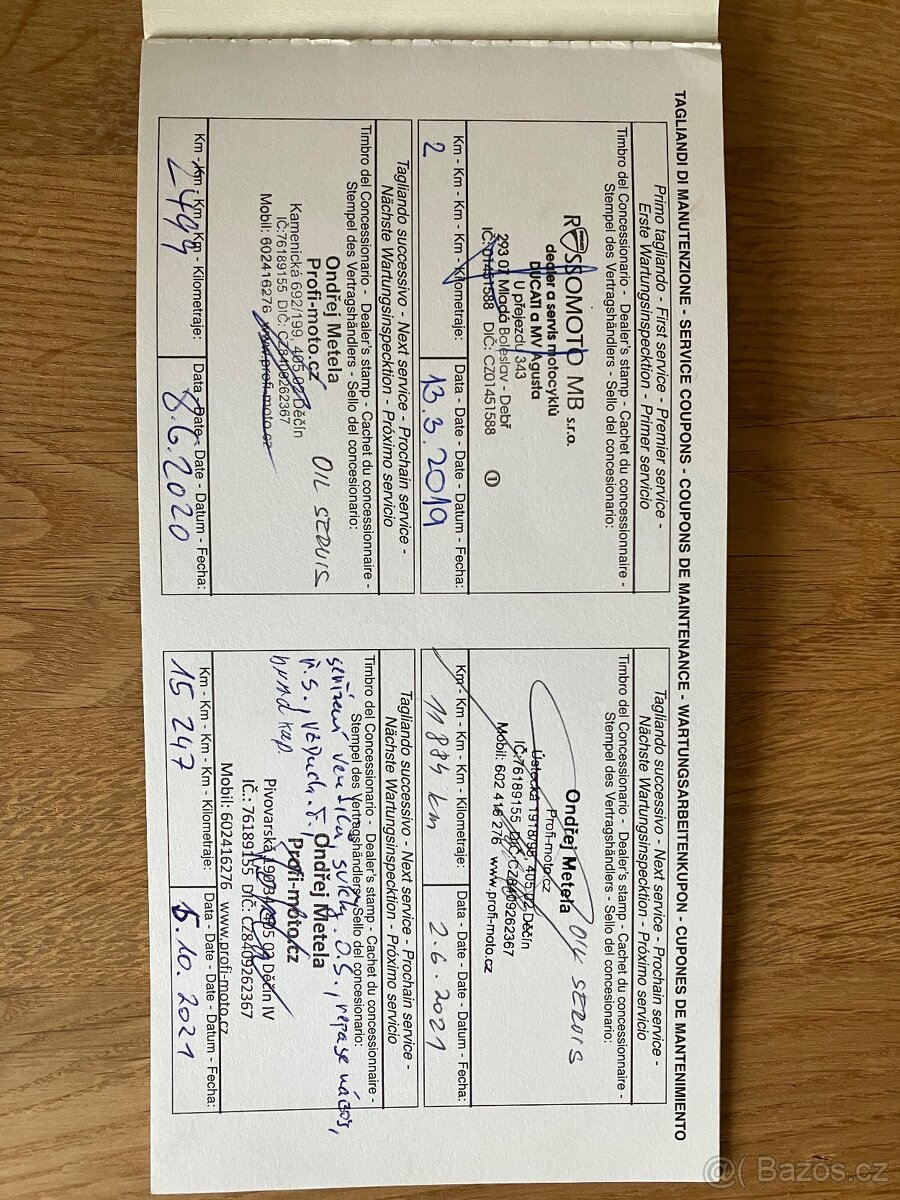 TAGLIANDI DI MANUTENZIONE - SERVICE COUPONS - COUPONS DE MAINTENANCE - WARTUNGSARBEITENKUPON - CUPONES DE MANTENIMIENTO
Primo tagliando - First service - Premier service -
Erste Wartungsinspecktion - Primer servicio
Timbro del Concessionario - Dealer's stamp - Cachet du concessionnaire -
Stempel des Vertragshändlers - Sello del concesionario:
ROSSOMOTO MB s.r.o.
dealer a servis motocyklů
DUCATI a MV Agusta
U přejezdu 343
293 07 Mladá Boleslav - Debř
IČ: 01451588 DIČ: CZ01451588
1
Km - Km - Km - Kilometraje:
2
Data - Date - Date - Datum - Fecha:
13.3.2019
Tagliando successivo - Next service - Prochain service -
Nächste Wartungsinspecktion - Próximo servicio
Timbro del Concessionario - Dealer's stamp - Cachet du concessionnaire -
Stempel des Vertragshändlers - Sello del concesionario:
Ondřej Metela
Profi-moto.cz
Ústecká 1918/98, 405 02 Děčín
IČ:76189155 DIČ:CZ8409262367
Mobil: 602 416 276 www.profi-moto.cz
OIL SERVIS
Km - Km - Km - Kilometraje:
11 884 km
Data - Date - Date - Datum - Fecha:
2.6.2021
Tagliando successivo - Next service - Prochain service -
Nächste Wartungsinspecktion - Próximo servicio
Timbro del Concessionario - Dealer's stamp - Cachet du concessionnaire -
Stempel des Vertragshändlers - Sello del concesionario:
Ondřej Metela
Profi-moto.cz
Kamenická 692/199, 405 02 Děčín
IČ:76189155 DIČ: CZ8409262367
Mobil: 602416276 www.profi-moto.cz
OIL SERVIS
Km - Km - Km - Kilometraje:
2499
Data - Date - Date - Datum - Fecha:
8.6.2020
Tagliando successivo - Next service - Prochain service -
Nächste Wartungsinspecktion - Próximo servicio
Timbro del Concessionario - Dealer's stamp - Cachet du concessionnaire -
Stempel des Vertragshändlers - Sello del concesionario:
seřízení ventilů, svíčky, O.S.,
Ř.S., vzduch. f.,
Ondřej Metela
Profi-moto.cz
Pivovarská 405 02 Děčín IV
IČ.: 76189155 DIČ: CZ8409262367
Mobil: 602416276 www.profi-moto.cz
Km - Km - Km - Kilometraje:
15 247
Data - Date - Date - Datum - Fecha:
5.10.2021
@( Bazoš.cz